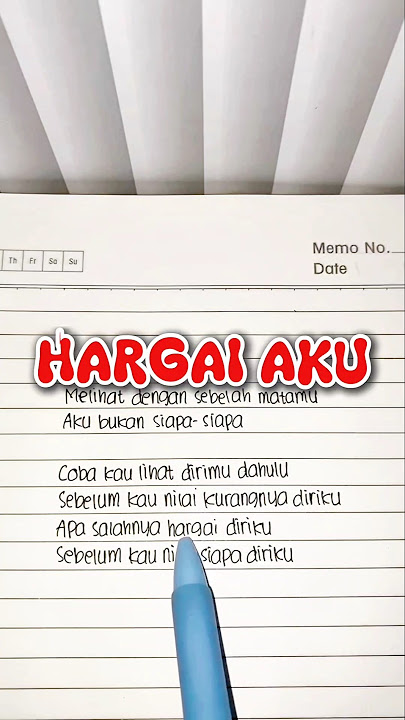 Th Fr Sa Su
Memo No.
Date
HARGAI AKU
Melihat dengan sebelah matamu
Aku bukan siapa-siapa
Coba kau lihat dirimu dahulu
Sebelum kau nilai kurangnya diriku
Apa salahnya hargai diriku
Sebelum kau siapa diriku